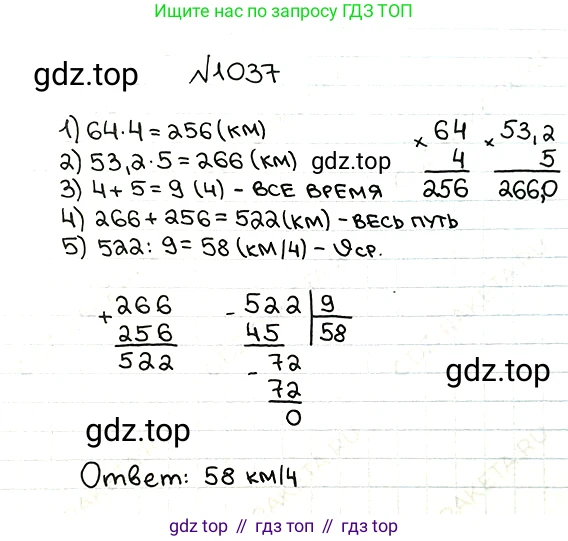 Ищите нас по запросу ГДЗ ТОП
gdz.top №1037
1) 64·4=256(км)
2) 53,2·5=266 (км) gdz.top
3) 4+5=9 (ч) - ВСЕ ВРЕМЯ
4) 266+256=522(км) - ВЕСЬ ПУТЬ
5) 522:9=58 (км/ч) - υср.
× 64
4
256
× 53,2
5
266,0
+ 266
256
522
- 522 | 9
45 | 58
- 72
72
0
gdz.top
gdz.top
Ответ: 58 км/ч
gdz top // гдз топ // gdz.top